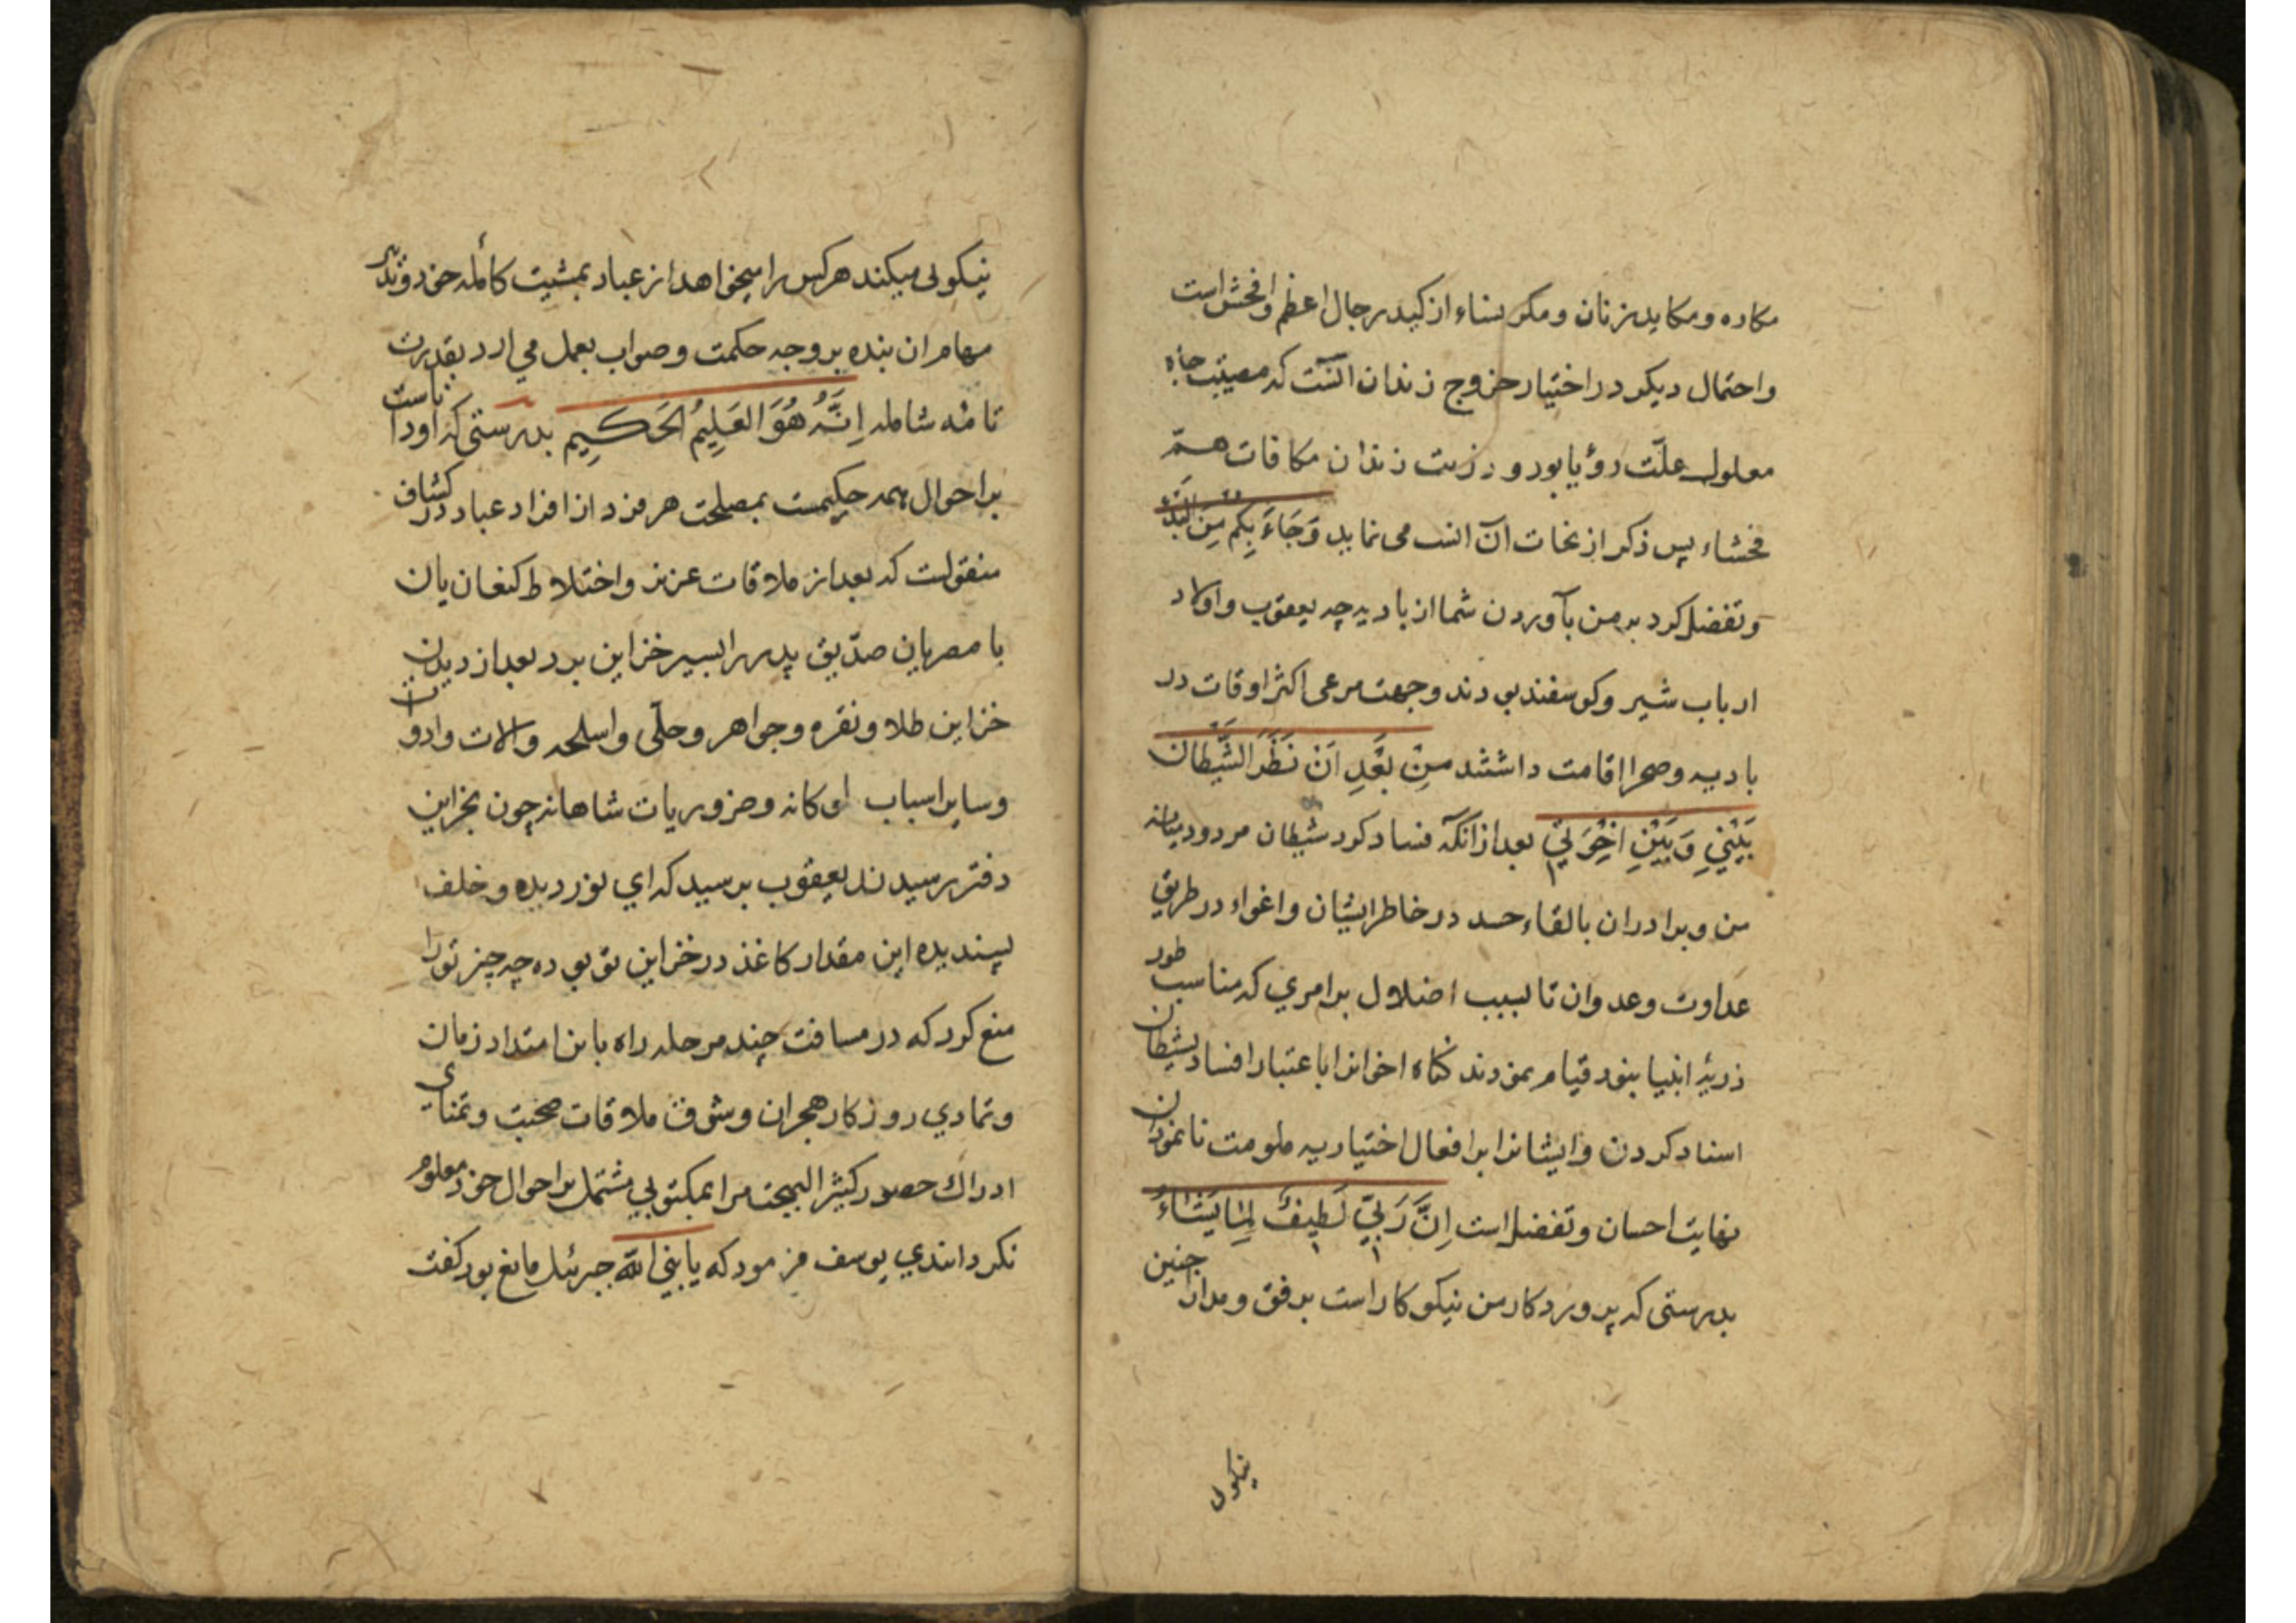 مکاره و مکاید زنان و مکر نساء از کید رجال اعظم و افحش است
و احتمال دیکر در اختیار خروج زندان آنست که مصیبت جاه
معلول علّت رؤیا بود و رزیت زندان مکافات همّ
فحشاء پس ذکر از نجات آن انسب می نماید وَجَاءَ بِکُم مِنَ البَدْوِ
و تفضل کرد بر من بآوردن شما از بادیه چه یعقوب و اولاد
ارباب شیر و کوسفند بودند و جهت مرعی اکثر اوقات در
بادیه و صحرا اقامت داشتند مِنْ بَعْدِ اَنْ نَظَغَ الشَّیْطَان
بَیْنِي وَ بَیْنِ اِخْوَتِي بعد از آنکه فساد کرد شیطان مردود میانه
من و برادران بالقاء حسد در خاطر ایشان و اغواء در طریق
عداوت و عدوان تا بسبب اضلال بر امری که مناسب طور
ذریّهٔ انبیا بنود قیام نمودند کناه اخوانرا باعتبار افساد بشیطان
اسناد کردن و ایشانرا بر افعال اختیاریه ملومت نانمودن
نهایت احسان و تفضل است اِنَّ رَبِّي لَطِیفٌ لِمَا یَشَاءُ
بدرستی که پروردکار من نیکو کار است برفق و مدارا چنین
نیکوی
نیکوی میکند هر کس را میخواهد از عباد بمشیت کاملهٔ خود و تدبیر
مهام ان بنده بر وجه حکمت و صواب بعمل می ارد بقدرت
تامّه شامله اِنَّهُ هُوَ العَلِیمُ الحَکِیم بدرستی که او داناست
بر احوال همه حکیمست بمصلحت هر فرد از افراد عباد در کشاف
منقولست که بعد از ملاقات عزیز و اختلاط کنعان یان
با مصریان صدّیق پدر را بسیر خزاین برد بعد از دیدن
خزاین طلا و نقره و جواهر و حلّی و اسلحه و الات و ادوات
و سایر اسباب لوکانه و ضروریات شاهانه چون بخزاین
دفتر رسیدند یعقوب پرسید که ای نور دیده و خلف
پسندیده این مقدار کاغذ در خزاین تو بوده چه چیز تو را
منع کرد که در مسافت چند مرحله راه با بن امتداد زمان
و تمادی روزکار هجران و شوق ملاقات صحبت و تمنای
ادراك حضور کثیر البهجت مرا بمکتوبی مشتمل بر احوال خود معلوم
نکردانندی یوسف فرمود که یا بنی الله جبرئیل مانع بود کفت